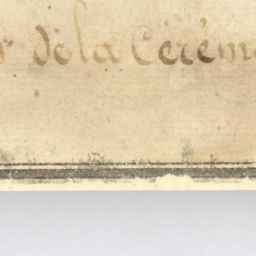 de la Cérém